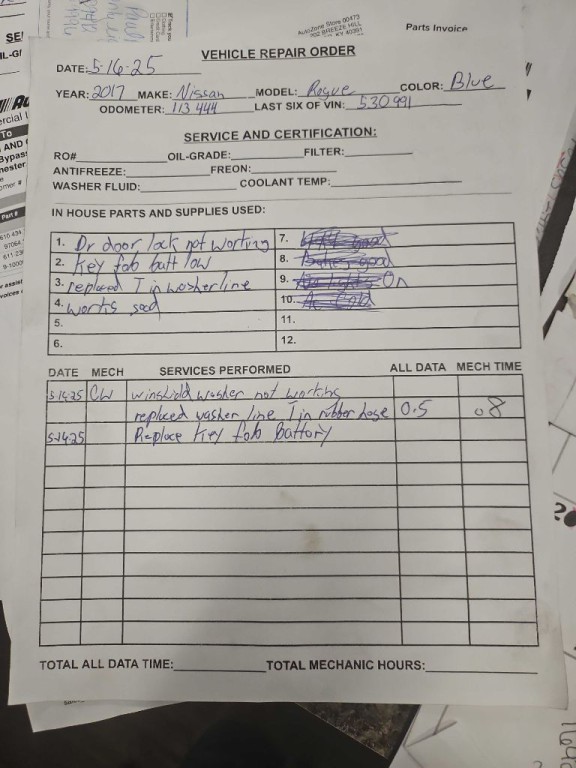 AutoZone Store 00473
Parts Invoice
VEHICLE REPAIR ORDER
DATE: 5-16-25
YEAR: 2017 MAKE: Nissan MODEL: Rogue COLOR: Blue
ODOMETER: 113 444 LAST SIX OF VIN: 530991
SERVICE AND CERTIFICATION:
RO# OIL-GRADE: FILTER:
ANTIFREEZE: FREON:
WASHER FLUID: COOLANT TEMP:
IN HOUSE PARTS AND SUPPLIES USED:
1. Dr door lock not working 7.
2. Key fob batt low 8.
3. replaced T in washer line 9. On
4. works good 10. Ac Cold
5. 11.
6. 12.
DATE MECH SERVICES PERFORMED ALL DATA MECH TIME
CW winshidd washer not working
replaced washer line T in rubber hose 0.5 .8
Replace Key fob Battory
TOTAL ALL DATA TIME: TOTAL MECHANIC HOURS: